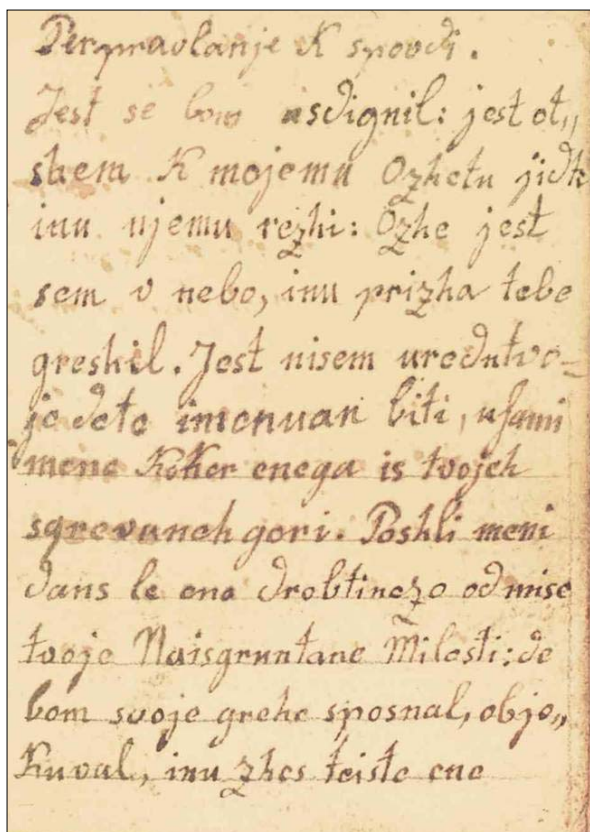 Perpravlanje K spovdi.
Jest se bom usdignil: jest ot„
shem K mojemu Ozhetu jidt
inu njemu rezhi: Ozhe jest
sem v nebo, inu prizha tebe
greshil. Jest nisem uredn tvo=
je dete imenuan biti, usami
mene Koker enega is tvojeh
sgrevaneh gori. Poshli meni
dans le ena drobtinezo od mise
tvoje Naisgruntane Milosti: de
bom svoje grehe sposnal, objo„
Kuval, inu zhes teiste ene